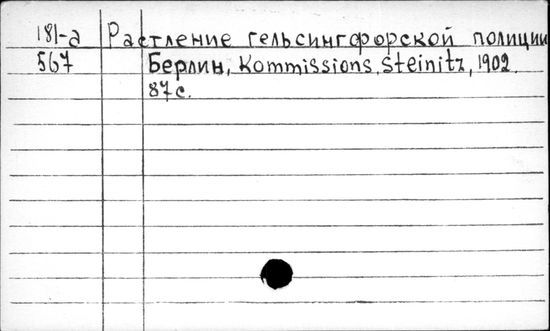 181-а Растление гельсингфорской полиции
567 Берлин, Kommissions. Steinitz, 1902.
87 с.